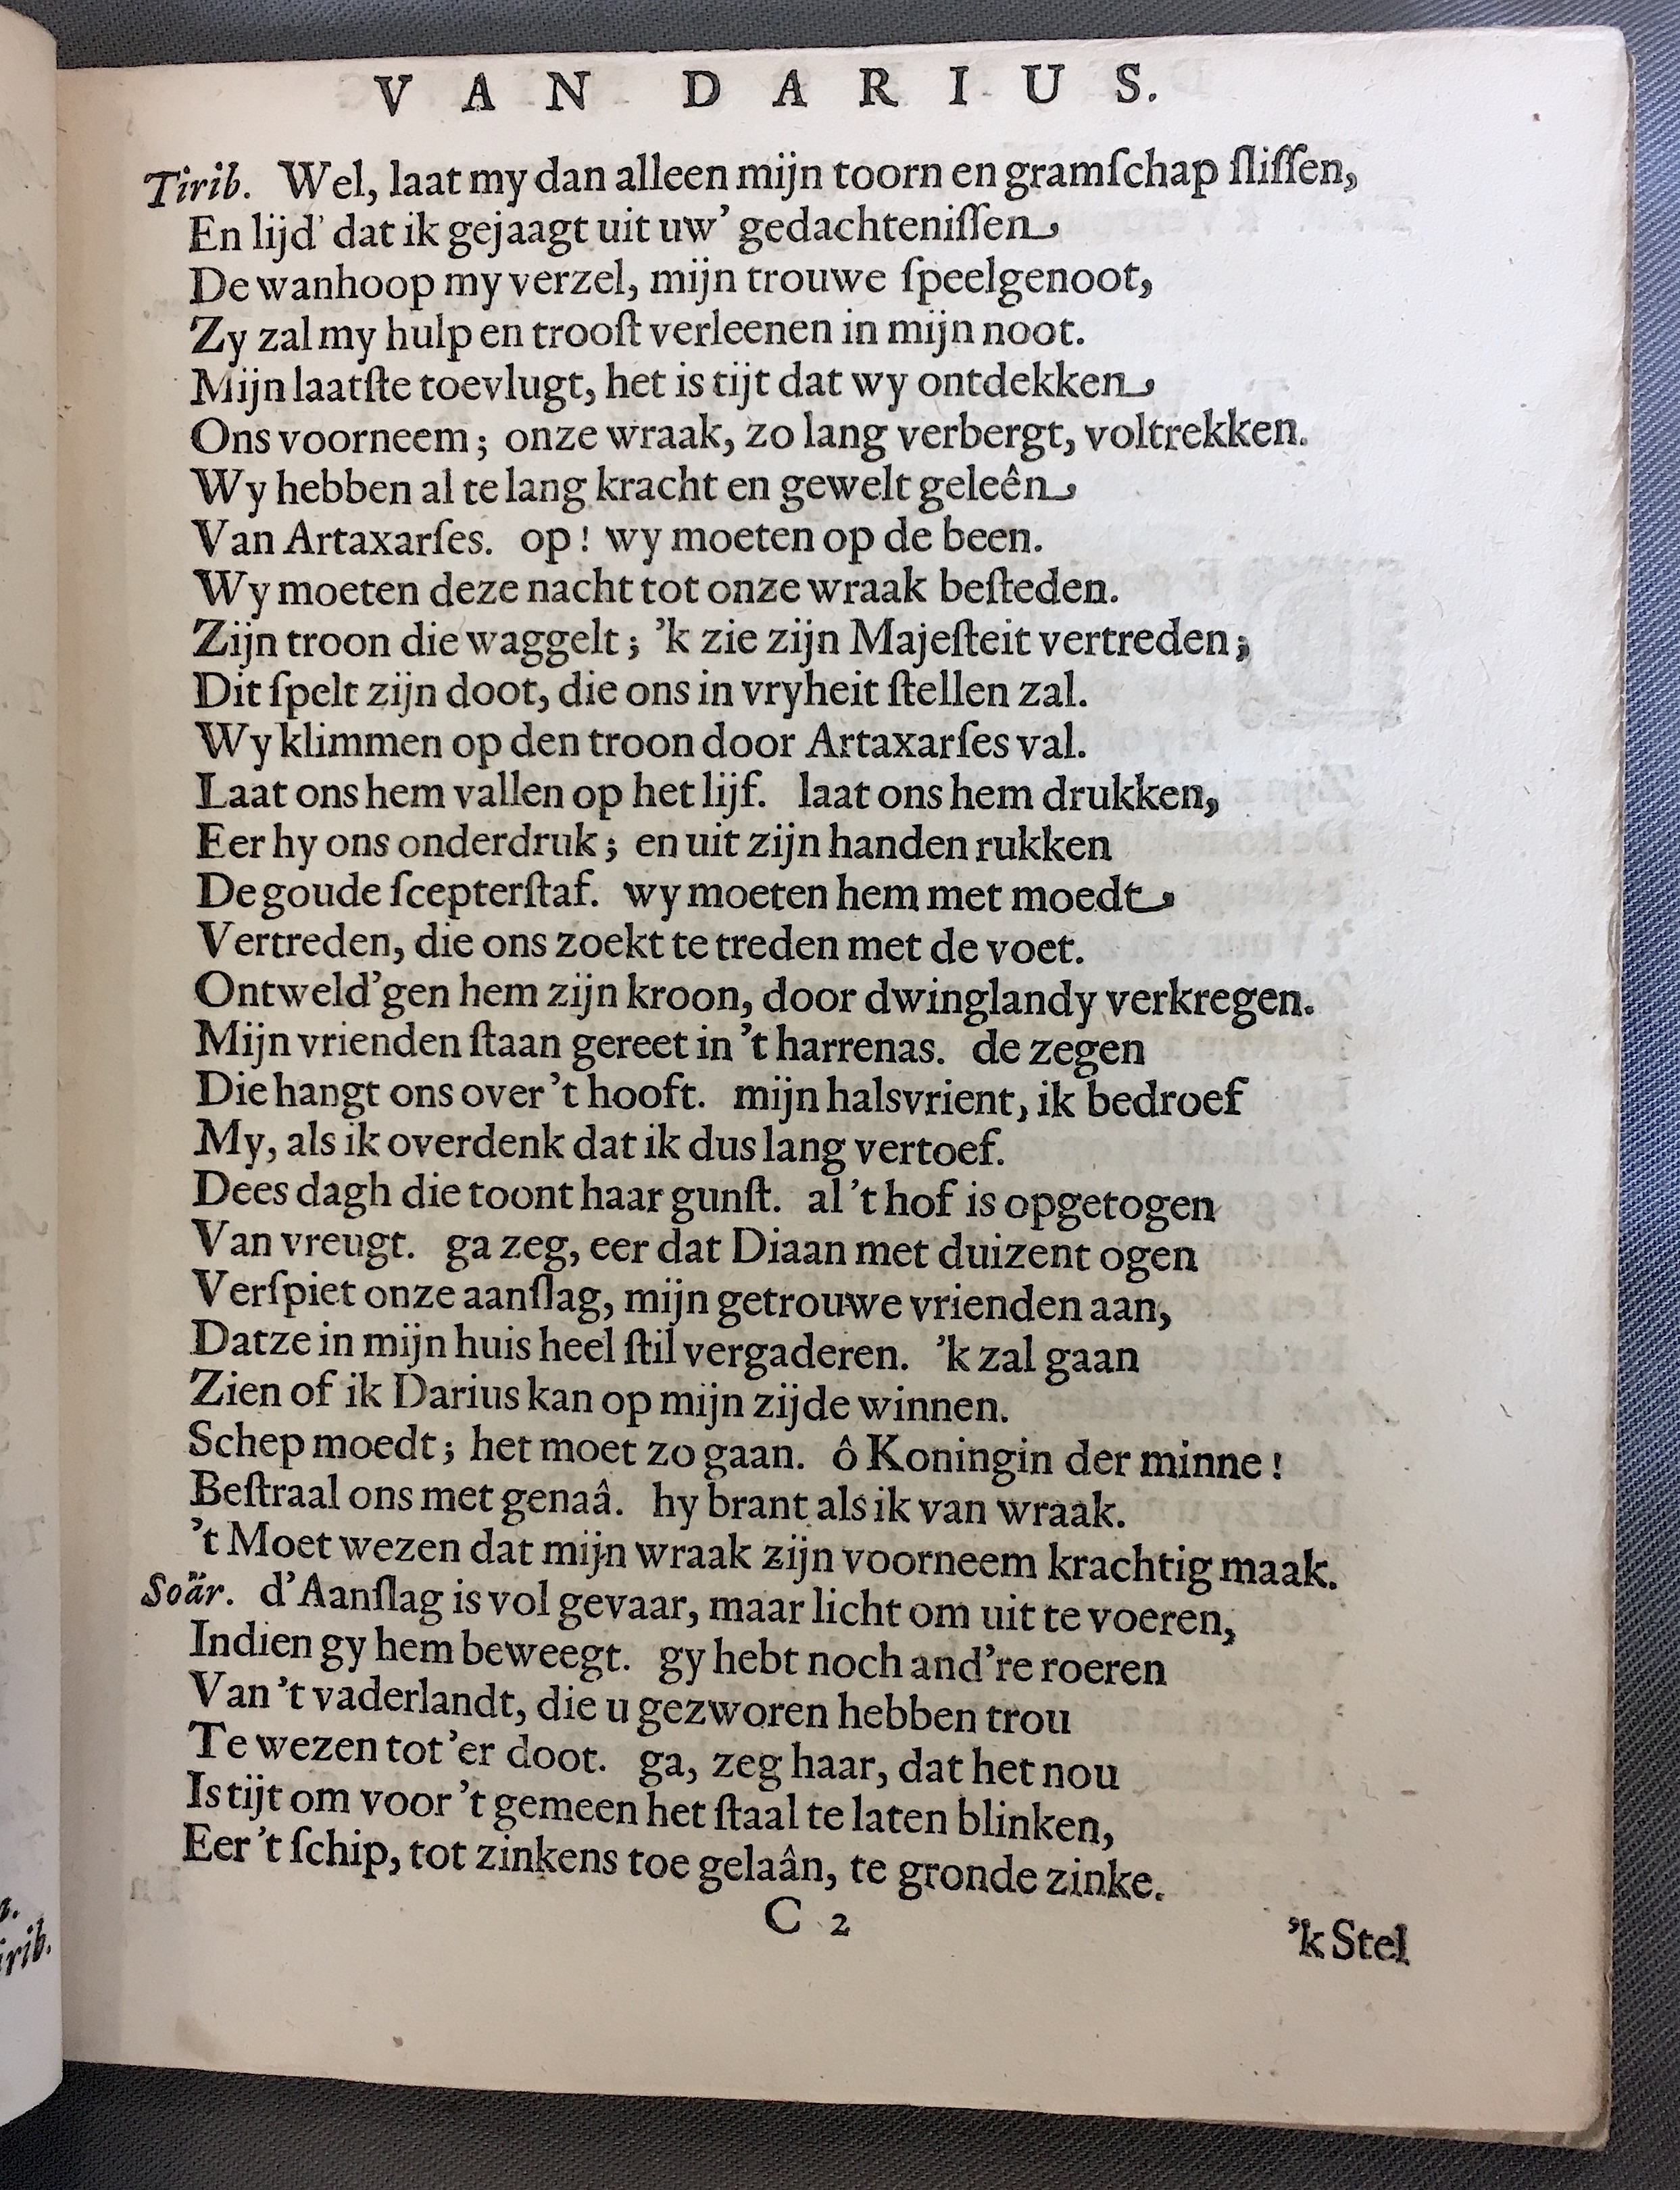 VAN DARIUS.
Tirib. Wel, laat my dan alleen mijn toorn en gramſchap ſliſſen,
En lijd' dat ik gejaagt uit uw' gedachteniſſen
De wanhoop my verzel, mijn trouwe ſpeelgenoot,
Zy zal my hulp en trooſt verleenen in mijn noot.
Mijn laatſte toevlugt, het is tijt dat wy ontdekken
Ons voorneem; onze wraak, zo lang verbergt, voltrekken.
Wy hebben al te lang kracht en gewelt geleên
Van Artaxarſes. op! wy moeten op de been.
Wy moeten deze nacht tot onze wraak beſteden.
Zijn troon die waggelt; 'k zie zijn Majeſteit vertreden;
Dit ſpelt zijn doot, die ons in vryheit ſtellen zal.
Wy klimmen op den troon door Artaxarſes val.
Laat ons hem vallen op het lijf. laat ons hem drukken,
Eer hy ons onderdruk; en uit zijn handen rukken
De goude ſcepterſtaf. wy moeten hem met moedt
Vertreden, die ons zoekt te treden met de voet.
Ontweld'gen hem zijn kroon, door dwinglandy verkregen.
Mijn vrienden ſtaan gereet in 't harrenas. de zegen
Die hangt ons over 't hooft. mijn halsvrient, ik bedroef
My, als ik overdenk dat ik dus lang vertoef.
Dees dagh die toont haar gunſt. al 't hof is opgetogen
Van vreugt. ga zeg, eer dat Diaan met duizent ogen
Verſpiet onze aanſlag, mijn getrouwe vrienden aan,
Datze in mijn huis heel ſtil vergaderen. 'k zal gaan
Zien of ik Darius kan op mijn zijde winnen.
Schep moedt; het moet zo gaan. ô Koningin der minne!
Beſtraal ons met genaâ. hy brant als ik van wraak.
't Moet wezen dat mijn wraak zijn voorneem krachtig maak.
Soär. d'Aanſlag is vol gevaar, maar licht om uit te voeren,
Indien gy hem beweegt. gy hebt noch and're roeren
Van 't vaderlandt, die u gezworen hebben trou
Te wezen tot 'er doot. ga, zeg haar, dat het nou
Is tijt om voor 't gemeen het ſtaal te laten blinken,
Eer 't ſchip, tot zinkens toe gelaân, te gronde zinke.
C 2
'k Stel